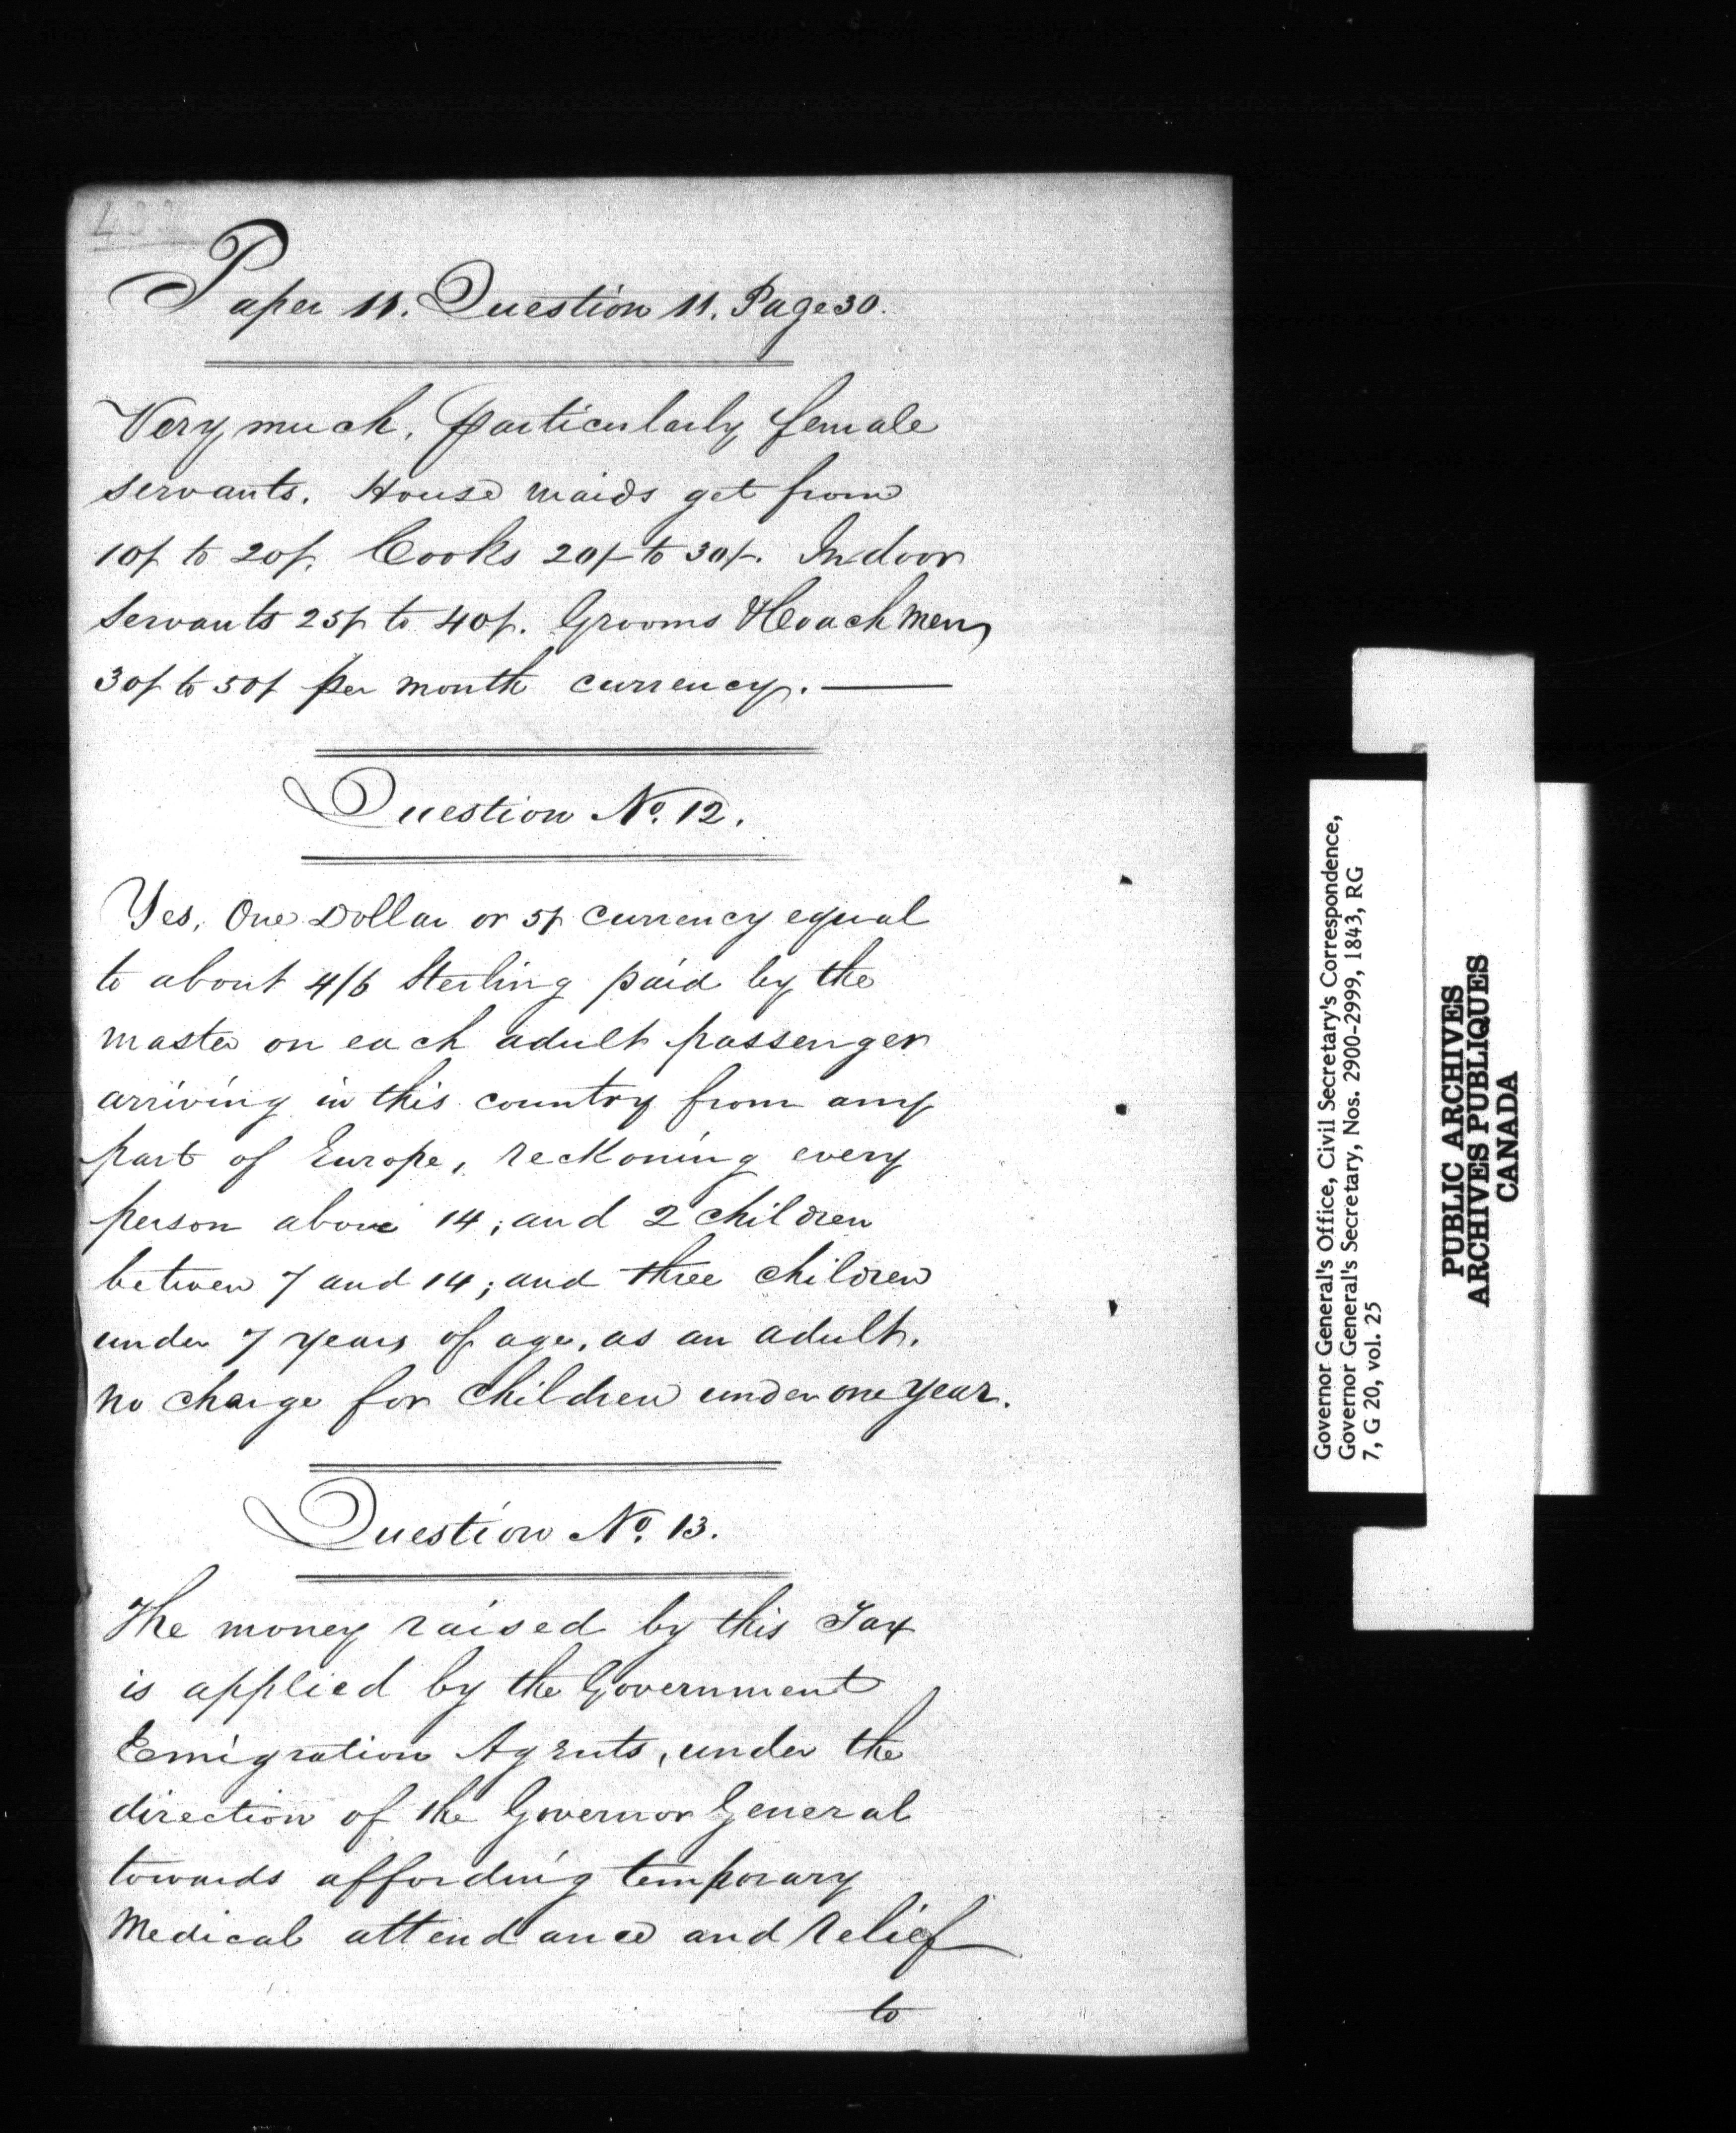 Paper 11. Question 11. Page 30.
Very much, particularly female
servants. House maids get from
10/- to 20/-. Cooks 20/- to 30/-. Indoor
Servants 25/- to 40/-. Grooms & Coachmen,
30/- to 50/- per month currency. —
Question No. 12.
Yes, One Dollar or 5/- currency equal
to about 4/6 Sterling paid by the
master on each adult passenger
arriving in this country from any
part of Europe, reckoning every
person above 14; and 2 children
between 7 and 14; and three children
under 7 years of age, as an adult.
no charge for children under one year.
Question No. 13.
The money raised by this Tax
is applied by the Government
Emigration Agents, under the
direction of the Governor General
towards affording temporary
Medical attendance and relief
to
Governor General's Office, Civil Secretary's Correspondence,
Governor General's Secretary, Nos. 2900-2999, 1843, RG
7, G 20, vol. 25
PUBLIC ARCHIVES
ARCHIVES PUBLIQUES
CANADA